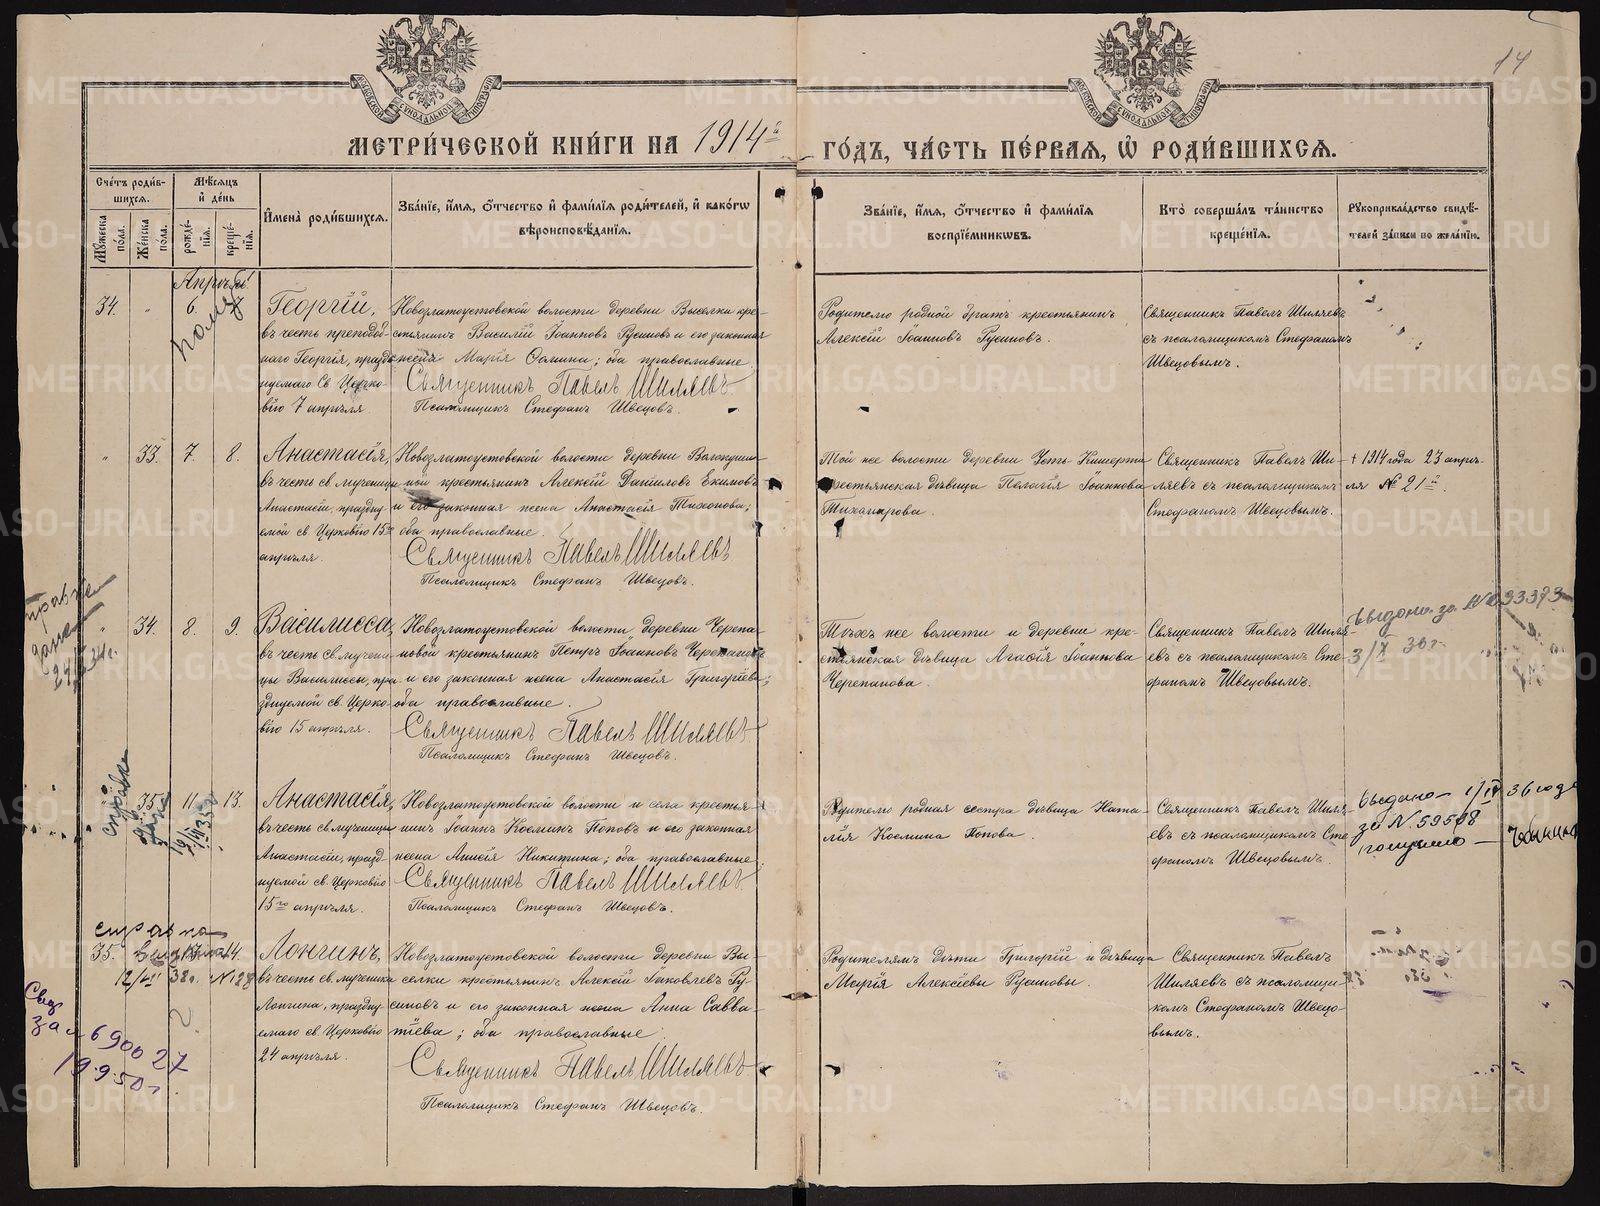 14
МОСКОВСКОЙ СѴНОДАЛЬНОЙ ТИПОГРАФІИ
МОСКОВСКОЙ СѴНОДАЛЬНОЙ ТИПОГРАФІИ
МЕТРИ́ЧЕСКОЙ КНИ́ГИ НА 1914й ГО́ДЪ, ЧА́СТЬ ПЕ́РВАЯ, Ѡ РОДИ́ВШИХСЯ.
Сче́тъ роди́в-
шихся.
Мꙋ́жеска по́ла.
Же́нска по́ла.
Мѣ́сяцъ
и҆ де́нь
рожде́-
нія.
креще́-
нія.
И҆мена̀ роди́вшихся.
Зва́ніе, и҆́мя, ѻ҆́тчество и҆ фами́лія роди́телей, и҆ како́гѡ
вѣроисповѣ́данія.
Зва́ніе, и҆́мя, ѻ҆́тчество и҆ фами́лія
воспріе́мникѡвъ.
Кто̀ соверша́лъ та́инство
креще́нія.
Рꙋкоприкла́дство свидѣ́-
телей за́писи по жела́нію.
Апрѣль.
34. „ 6. 7
Георгій,
въ честь преподоб-
наго Георгія, праздн
нуемаго Св. Церко-
вію 7 апрѣля
Новозлатоустовской волости деревни Выселки кре-
стьянинъ Василій Іоанновъ Русиновъ и его законная
жена Марія Ѳомина; оба православные
Священникъ Павелъ Шиляевъ
Псаломщикъ Стефанъ Швецовъ.
Родителю родной братъ крестьянинъ
Алексій Іоанновъ Русиновъ.
Священникъ Павелъ Шиляевъ
съ псаломщикомъ Стефаномъ
Швецовымъ.
„ 33. 7. 8.
Анастасія,
въ честь св. мученицы
Анастасіи, праздну-
емой св. Церковію 15го
апрѣля.
Новозлатоустовской волости деревни
крестьянинъ Алексій Даниловъ Екимовъ
и его законная жена Анастасія Тихонова;
оба православные.
Священникъ Павелъ Шиляевъ
Псаломщикъ Стефанъ Швецовъ.
Той же волости деревни Усть-Кишерти
крестьянская дѣвица Пелагія Іоаннова
Священникъ Павелъ Ши-
ляевъ съ псаломщикомъ
Стефаномъ Швецовымъ.
+ 1914 года 23 апрѣ-
ля № 21й.
„ 34. 8. 9.
Василисса,
въ честь св. мучени-
цы Василиссы, пра
зднуемой св. Церко-
вію 15 апрѣля.
Новозлатоустовской волости деревни Черепа-
новой крестьянинъ Петръ Іоанновъ Черепановъ
и его законная жена Анастасія Григоріева;
оба православные.
Священникъ Павелъ Шиляевъ
Псаломщикъ Стефанъ Швецовъ.
Тѣхъ же волости и деревни кре-
стьянская дѣвица Агафія Іоаннова
Черепанова.
Священникъ Павелъ Шиля-
евъ съ псаломщикомъ Сте-
фаномъ Швецовымъ.
Выдано за № 093373
3/X 36 г.
справка
35. 11 13.
Анастасія,
въ честь св. мученицы
Анастасіи, празд-
нуемой св. Церковію
15го апрѣля.
Новозлатоустовской волости и села крестья-
нинъ Іоаннъ Космин Поповъ и его законная
жена Анисія Никитина; оба православные
Священникъ Павелъ Шиляевъ.
Псаломщикъ Стефанъ Швецовъ.
Родителю родная сестра дѣвица Ната-
лія Космина Попова.
Священникъ Павелъ Шиля-
евъ съ псаломщикомъ Сте
фаномъ Швецовымъ.
выдано 1/IV 36 года
за N. 59598
справка
35. 13 14.
12/VI 38г. N 128
Свид
за 690027
19.9.50 г
Лонгинъ,
въ честь св. мученика
Лонгина, праздну-
емаго св. Церковію
24 апрѣля.
Новозлатоустовской волости деревни Вы-
селки крестьянинъ Алексій Іаковлевъ Ру-
синовъ и его законная жена Анна Савва-
тіева; оба православные
Священникъ Павелъ Шиляевъ
Псаломщикъ Стефанъ Швецовъ.
Родителямъ дѣти Григорій и дѣвица
Марія Алексіевы Русиновы.
Священникъ Павелъ
Шиляевъ съ псаломщи-
комъ Стефаномъ Швецо-
вымъ.
METRIKI.GASO-URAL.RU